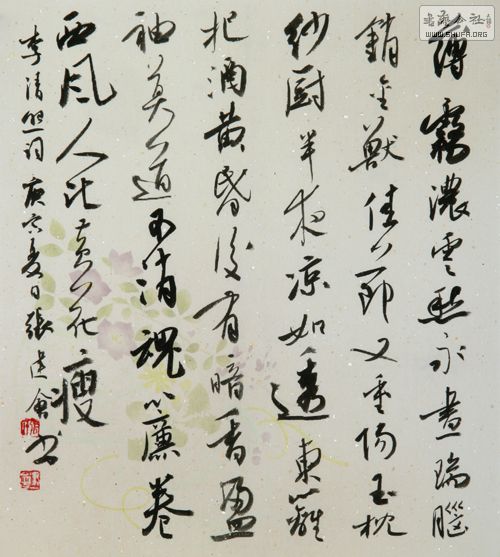 薄霧濃雲愁永晝瑞腦
銷金獸佳節又重陽玉枕
紗厨半夜凉初透東籬
把酒黃昏後有暗香盈
袖莫道不消魂簾卷
西風人比黃花瘦
李清照詞庚寅夏日張建會書
書法公社
WWW.SHUFA.ORG